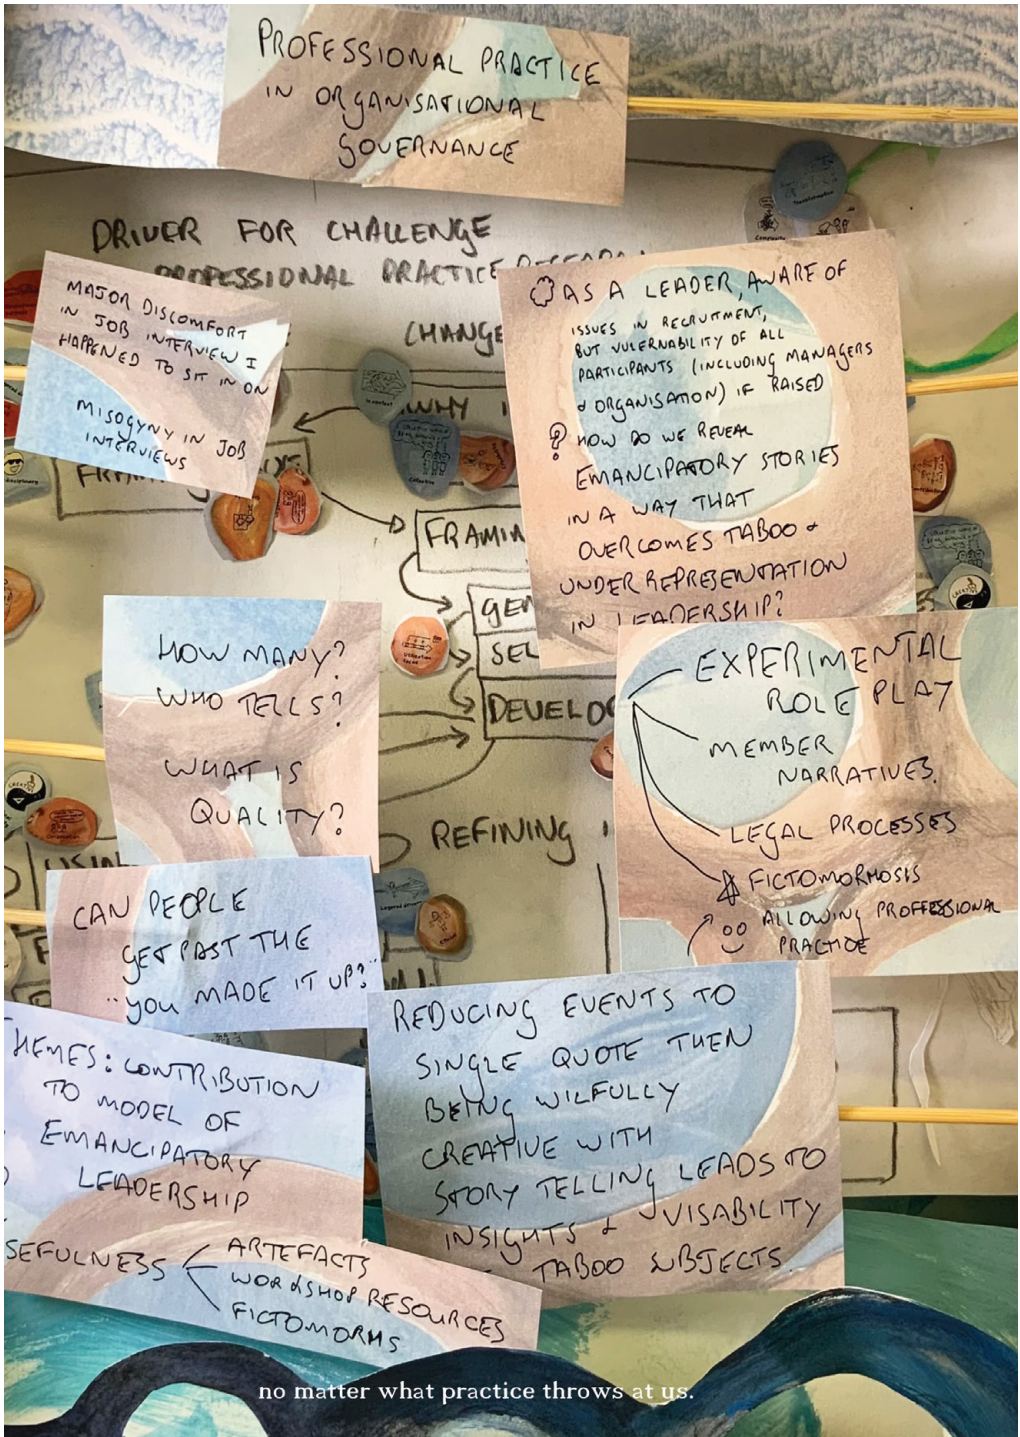 PROFESSIONAL PRACTICE
IN ORGANISATIONAL
GOVERNANCE
DRIVER FOR CHALLENGE
PROFESSIONAL PRACTICE RESEARCH
CHANGE
WHY
MAJOR DISCOMFORT
IN JOB INTERVIEW I
HAPPENED TO SIT IN ON
MISOGYNY IN JOB
INTERVIEWS
AS A LEADER, AWARE OF
ISSUES IN RECRUITMENT,
BUT VULERNABILITY OF ALL
PARTICIPANTS (INCLUDING MANAGERS
& ORGANISATION) IF RAISED
? HOW DO WE REVEAL
EMANCIPATORY STORIES
IN A WAY THAT
OVERCOMES TABOO &
UNDER REPRESENTATION
IN LEADERSHIP?
FRAMIN
GEN
SEL
DEVELO
HOW MANY?
WHO TELLS?
WHAT IS
QUALITY?
EXPERIMENTAL
ROLE PLAY
MEMBER
NARRATIVES.
LEGAL PROCESSES
FICTOMORHOSIS
ALLOWING PROFFESSIONAL
PRACTICE
REFINING
USIN
CAN PEOPLE
GET PAST THE
"YOU MADE IT UP?"
HEMES: CONTRIBUTION
TO MODEL OF
EMANCIPATORY
LEADERSHIP
SEFULNESS
ARTEFACTS
WORKSHOP RESOURCES
FICTOMORHS
REDUCING EVENTS TO
SINGLE QUOTE THEN
BEING WILFULLY
CREATIVE WITH
STORY TELLING LEADS TO
INSIGHTS & VISABILITY
TABOO SUBJECTS.
no matter what practice throws at us.